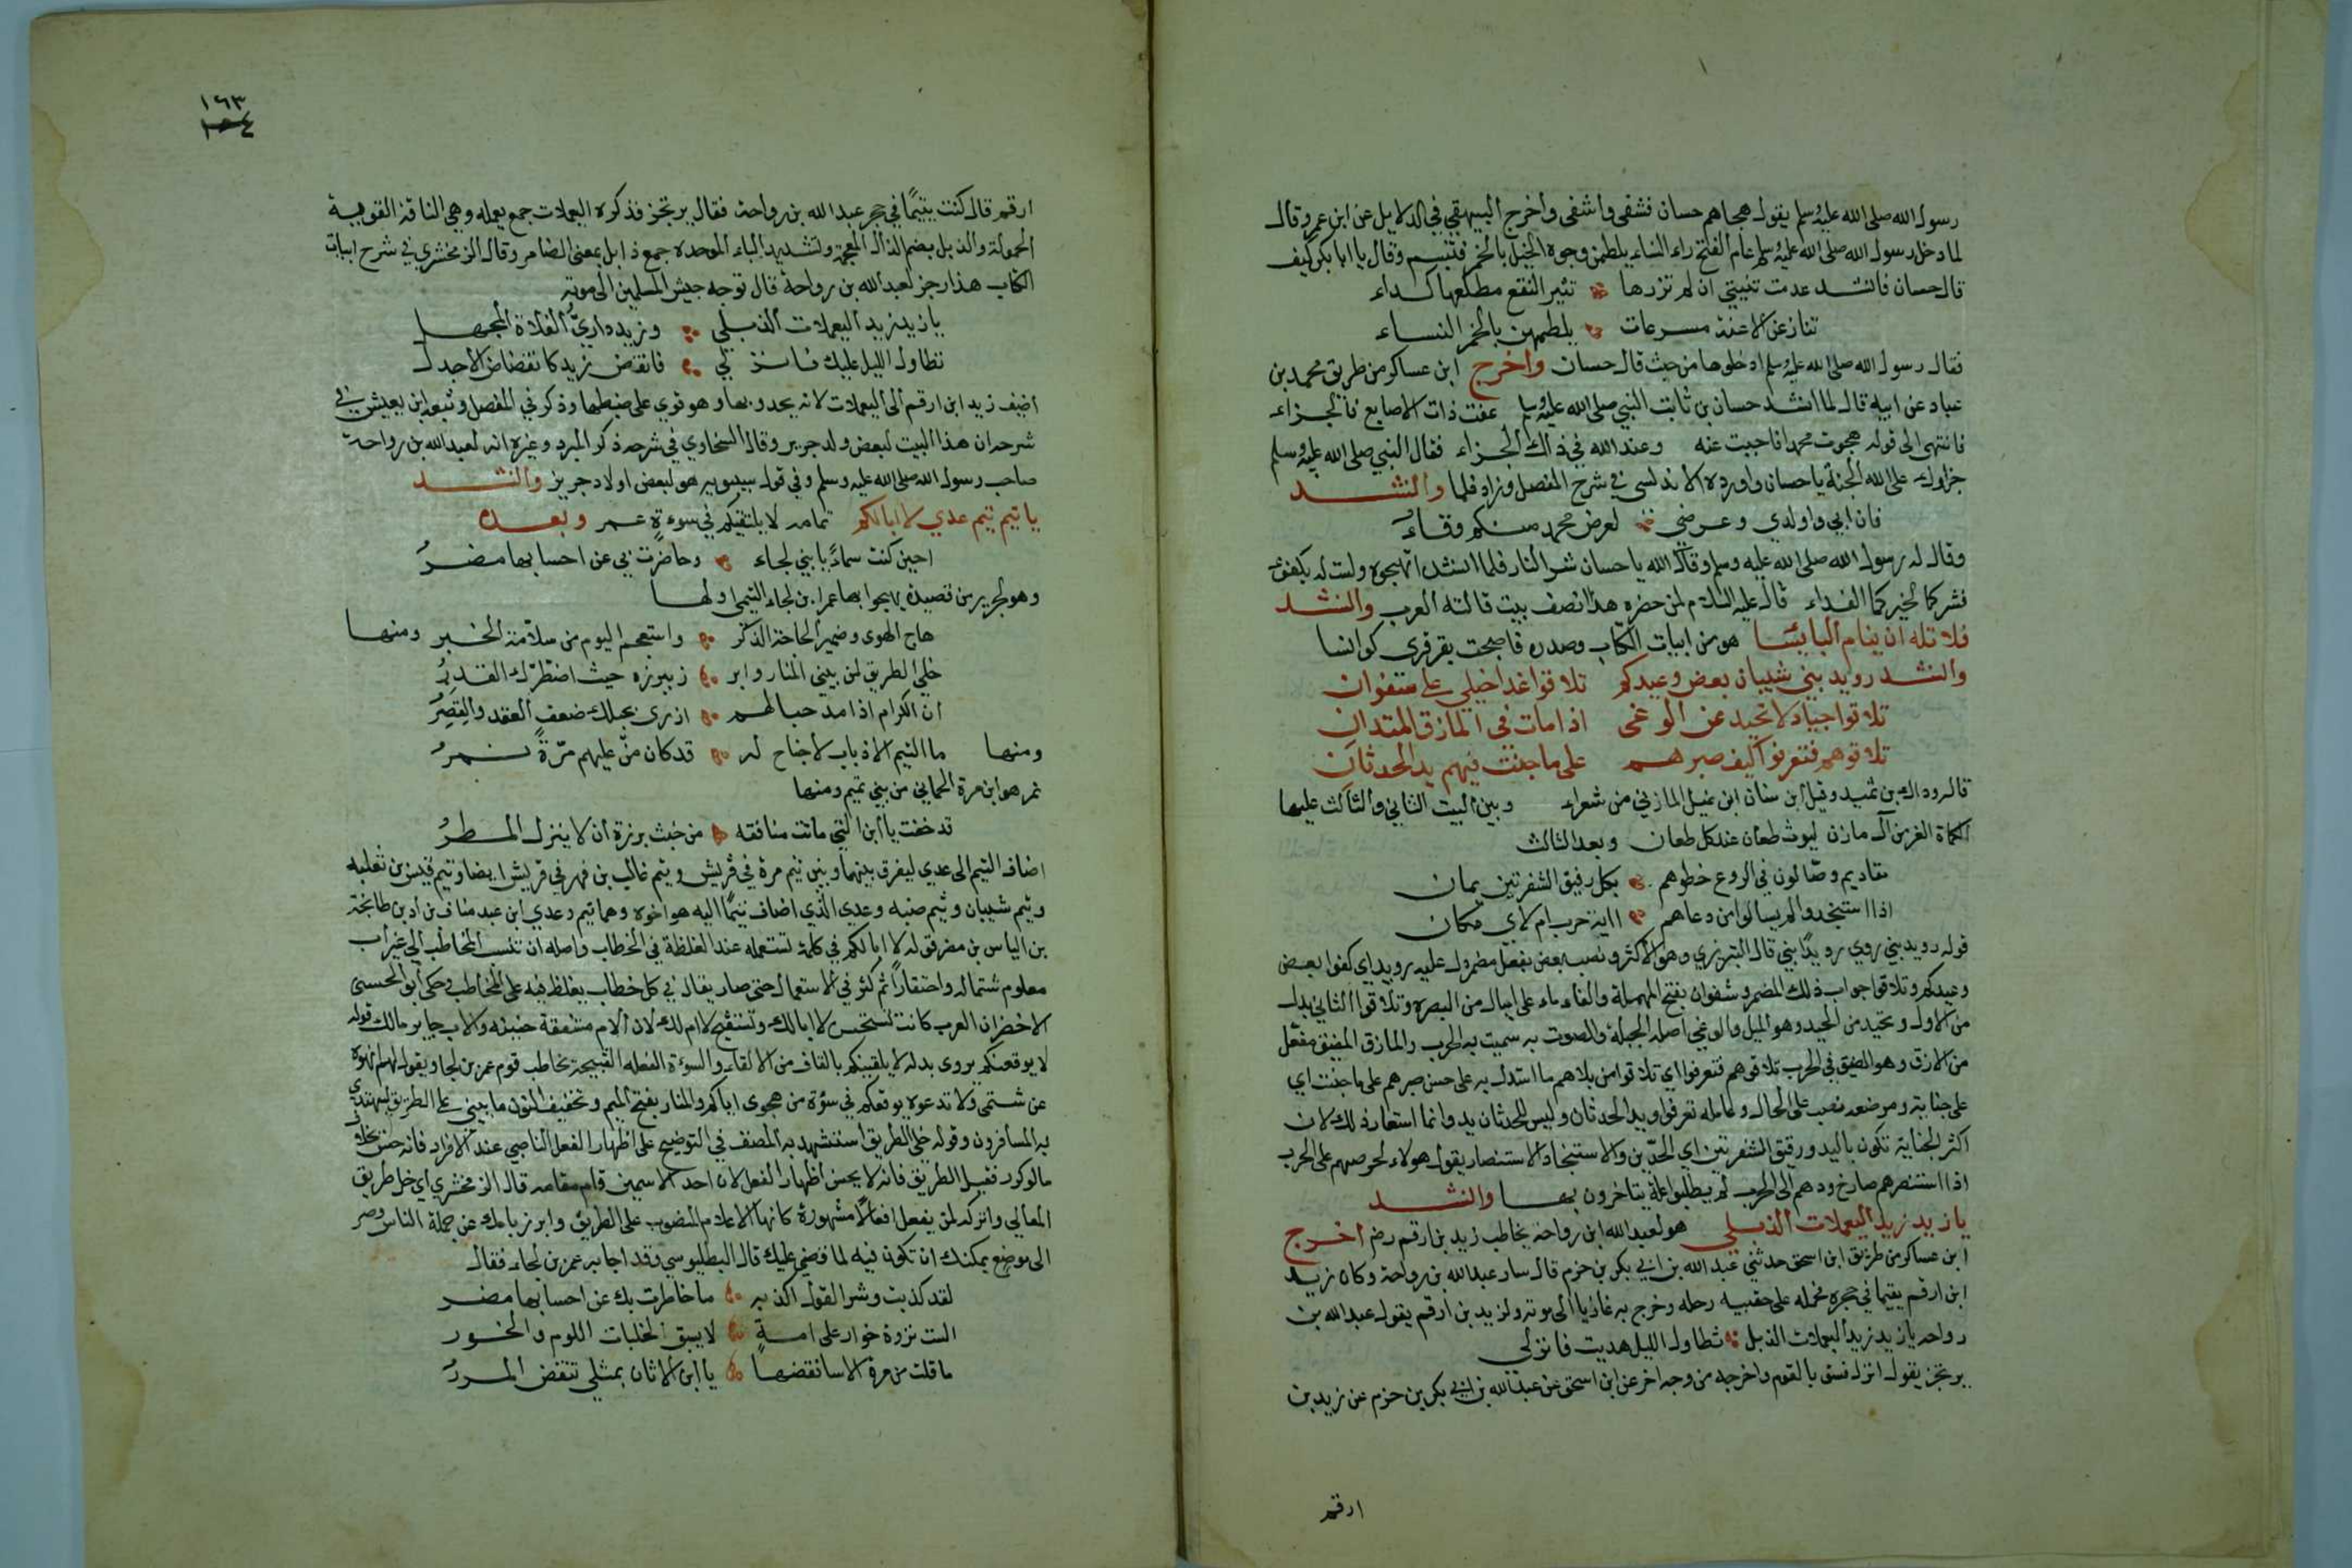 رسول الله صلى الله عليه وسلم يقول هجاهم حسان فشفى واشفى واخرج البيهقي في الدلايل عن ابن عمر وقال
لما دخل رسول الله صلى الله عليه وسلم عام الفتح راء النساء يلطمن وجوه الخيل بالخمر فتبسم وقال يا ابا بكر كيف
قال حسان فانشد عدت ثنيتي ان لم تزرها تثير النقع مطلعها كداء
تنازعن الاعنة مسرعات يلطمهن بالخمر النساء
فقال رسول الله صلى الله عليه وسلم ادخلوها من حيث قال حسان واخرج ابن عساكر من طريق محمد بن
عباد عن ابيه قال لما انشد حسان بن ثابت النبي صلى الله عليه وسلم عفت ذات الاصابع فالجزاء
فانتهى الى قوله هجوت محمدا فاجبت عنه وعند الله في ذاك الجزاء فقال النبي صلى الله عليه وسلم
جزاوك على الله الجنة يا حسان واورده الاندلسي في شرح المفصل وزاد فلما وانشد
فان ابي واولدي وعرضي لعرض محمد منكم وقاء
وقال له رسول الله صلى الله عليه وسلم وقاك الله يا حسان شر النار فلما انشد اتهجوه ولست له بكفئ
فشركما لخيركما الفداء قال عليه السلام لمن حضره هذا نصف بيت قالته العرب وانشد
فلا تله ان ينام البايسا هو من ابيات الكتاب وصدره فاصبحت بقرقرى كوانسا
وانشد رويد بني شيبان بعض وعيدكم تلاقوا غدا خيلي على سفوان
تلاقوا جيادا لا تحيد عن الوغى اذا مات في المازق المتدان
تلاقوهم فتعرفوا كيف صبرهم على ما جنت فيهم يد الحدثان
قال وداك بن ثميد وقيل ابن سنان ابن نميل المازني من شعراء وبين البيت الثاني والثالث عليها
الكماة الغر من آل مازن ليوث طعان عند كل طعان وبعد الثالث
مقاديم وصالون في الروع خطوهم بكل رقيق الشفرتين يمان
اذا استنجدوا لم يسالوا من دعاهم الاية حرب ام لاي مكان
قوله رويد بني روي رويدا بني قال التبريزي وهو الاكثر ونصب بعض بفعل مضمر دل عليه رويد اي كفوا بعض
وعيدكم وتلاقوا جواب ذلك المضمر وسفوان بفتح المهملة والفاء ماء على اميال من البصرة وتلاقوا الثاني بدل
من الاول وتحيد من الحيد وهو الميل والوغى اصله الجلبة والصوت به سميت به الحرب والمازق المضيق مفعل
من الازق وهو الضيق في الحرب تلاقوهم فتعرفوا اي تلاقوا من بلاهم ما استدل به على حسن صبرهم على ما جنت اي
على جناية وموضعه نصب على الحال وعامله تعرفوا ويد الحدثان وليس للحدثان يد وانما استعار ذلك لان
اكثر الجناية تكون باليد ورقيق الشفرتين اي الحدين والاستنجاد الاستنصار يقول هولاء لحرصهم على الحرب
اذا استنصرهم صارخ ودهم الى الحرب لم يطلبوا علة يتاخرون بها وانشد
يا زيد زيد اليعملات الذبلي هو لعبد الله ابن رواحة يخاطب زيد بن ارقم رضه اخرج
ابن عساكر من طريق ابن اسحق حدثني عبد الله بن ابي بكر بن حزم قال سار عبد الله بن رواحة وكان زيد
ابن ارقم يتيما في حجره فحمله على حقيبة رحله وخرج به غازيا الى موته ولزيد بن ارقم يقول عبد الله بن
رواحه يا زيد زيد اليعملات الذبل تطاول الليل هديت فانزلي
يرتجز يقول انزل فسق بالقوم واخرجه من وجه اخر عن ابن اسحق عن عبد الله بن ابي بكر بن حزم عن زيد بن
ارقم
١٦٣
١٥٤
ارقم قال كنت يتيما في حجر عبد الله بن رواحة فقال يرتجز فذكره اليعملات جمع يعمله وهي الناقة القوية
الحمولة والذبل بضم الذال المعجمة وتشديد الباء الموحده جمع ذابل بمعنى الضامر وقال الزمخشري في شرح ابيات
الكتاب هذا رجز لعبد الله بن رواحة قال توجه جيش المسلمين الى موته
يا زيد زيد اليعملات الذبلي وزيد داري الفلاة المجهل
تطاول الليل عليك فانزلي فانقض زيد كانقضاض الاجدل
اضف زيد ابن ارقم الى اليعملات لانه يحدو بها وهو قوي على ضبطها وذكر في المفصل وتبعه ابن يعيش في
شرحه ان هذا البيت لبعض ولد جرير وقال السخاوي في شرحه ذكر المبرد وغيره انه لعبد الله بن رواحة
صاحب رسول الله صلى الله عليه وسلم وفي قول سيبويه هو لبعض اولاد جرير وانشد
يا تيم تيم عدي لا ابا لكم تمامه لا يلقينكم في سوءة عمر وبعده
احين كنت سماما يا بني لجاء وخاضرت بي عن احسابها مضر
وهو لجرير من قصيدة يهجوا بها عمر بن لجاء التيمي اولها
هاج الهوى وضمير الحاجة الذكر واستعجم اليوم من سلامة الخبر ومنها
خلي الطريق لمن يبني المنار وابرز ببرزه حيث اضطرك القدر
ان الكرام اذا مد حبالهم ازرى بحبلك ضعف العقد والقصر
ومنها ما التيم الا ذباب لا جناح له قد كان من عليهم مرة نمر
نمر هو ابن مرة الحماني من بني تميم ومنها
قد خفت يا ابن التي ماتت منافقه من خبث برزة ان لا ينزل المطر
اضاف التيم الى عدي ليفرق بينهما وبين تيم مرة في قريش وتيم غالب بن فهر في قريش ايضا وتيم قيس بن ثعلبه
وتيم شيبان وتيم ضبه وعدي الذي اضاف تيما اليه هو اخوه وهما تيم وعدي ابن عبد مناف بن اد بن طابخة
بن الياس بن مضر قوله لا ابا لكم في كلمة تستعمله عند الغلظة في الخطاب واصله ان تنسب المخاطب الى غير اب
معلوم شتما له واحتقارا ثم كثر في الاستعمال حتى صار يقال في كل خطاب يغلظ فيه على المخاطب وحكى ابو الحسن
الاخضر ان العرب كانت تستحسن لا ابا لك وتستقبح لا ام لك لان الام مشفقة حنينه والاب جاير مالك قوله
لا يوقعنكم يروى بدله لا يلقينكم بالقاف من الالقاء والسوءة الفعله القبيحة تخاطب قوم عمر بن لجا ويقول لهم انهوه
عن شتمي ولا تدعوه يوقعكم في سؤة من هجوى اياكم والمنار بفتح الميم وتخفيف النون ما يبنى على الطريق ليهتدي
به المسافرون وقوله خل الطريق استشهد به المصنف في التوضيح على اظهار الفعل الناصبي عند الافراد فانه حسن بخلاف
مالو كرر فقيل الطريق الطريق فانه لا يحسن اظهار الفعل لان احد الاسمين قام مقامه قال الزمخشري اي خل طريق
المعالي واتركه لمن يفعل افعالا مشهورة كانها الاعلام المنصوب على الطريق وابرز بامك عن جملة الناس وصر
الى موضع يمكنك ان تكون فيه لما قضي عليك قال البطليوسي وقد اجابه عمر بن لجاء فقال
لقد كذبت وشر القول اكذبه ما خاطرت بك عن احسابها مضر
الست نزوة خوار على امة لا يسبق الحلبات اللوم والخور
ما قلت من مرة الا سانقضها يا ابن الاتان بمثلي تنقض المرر